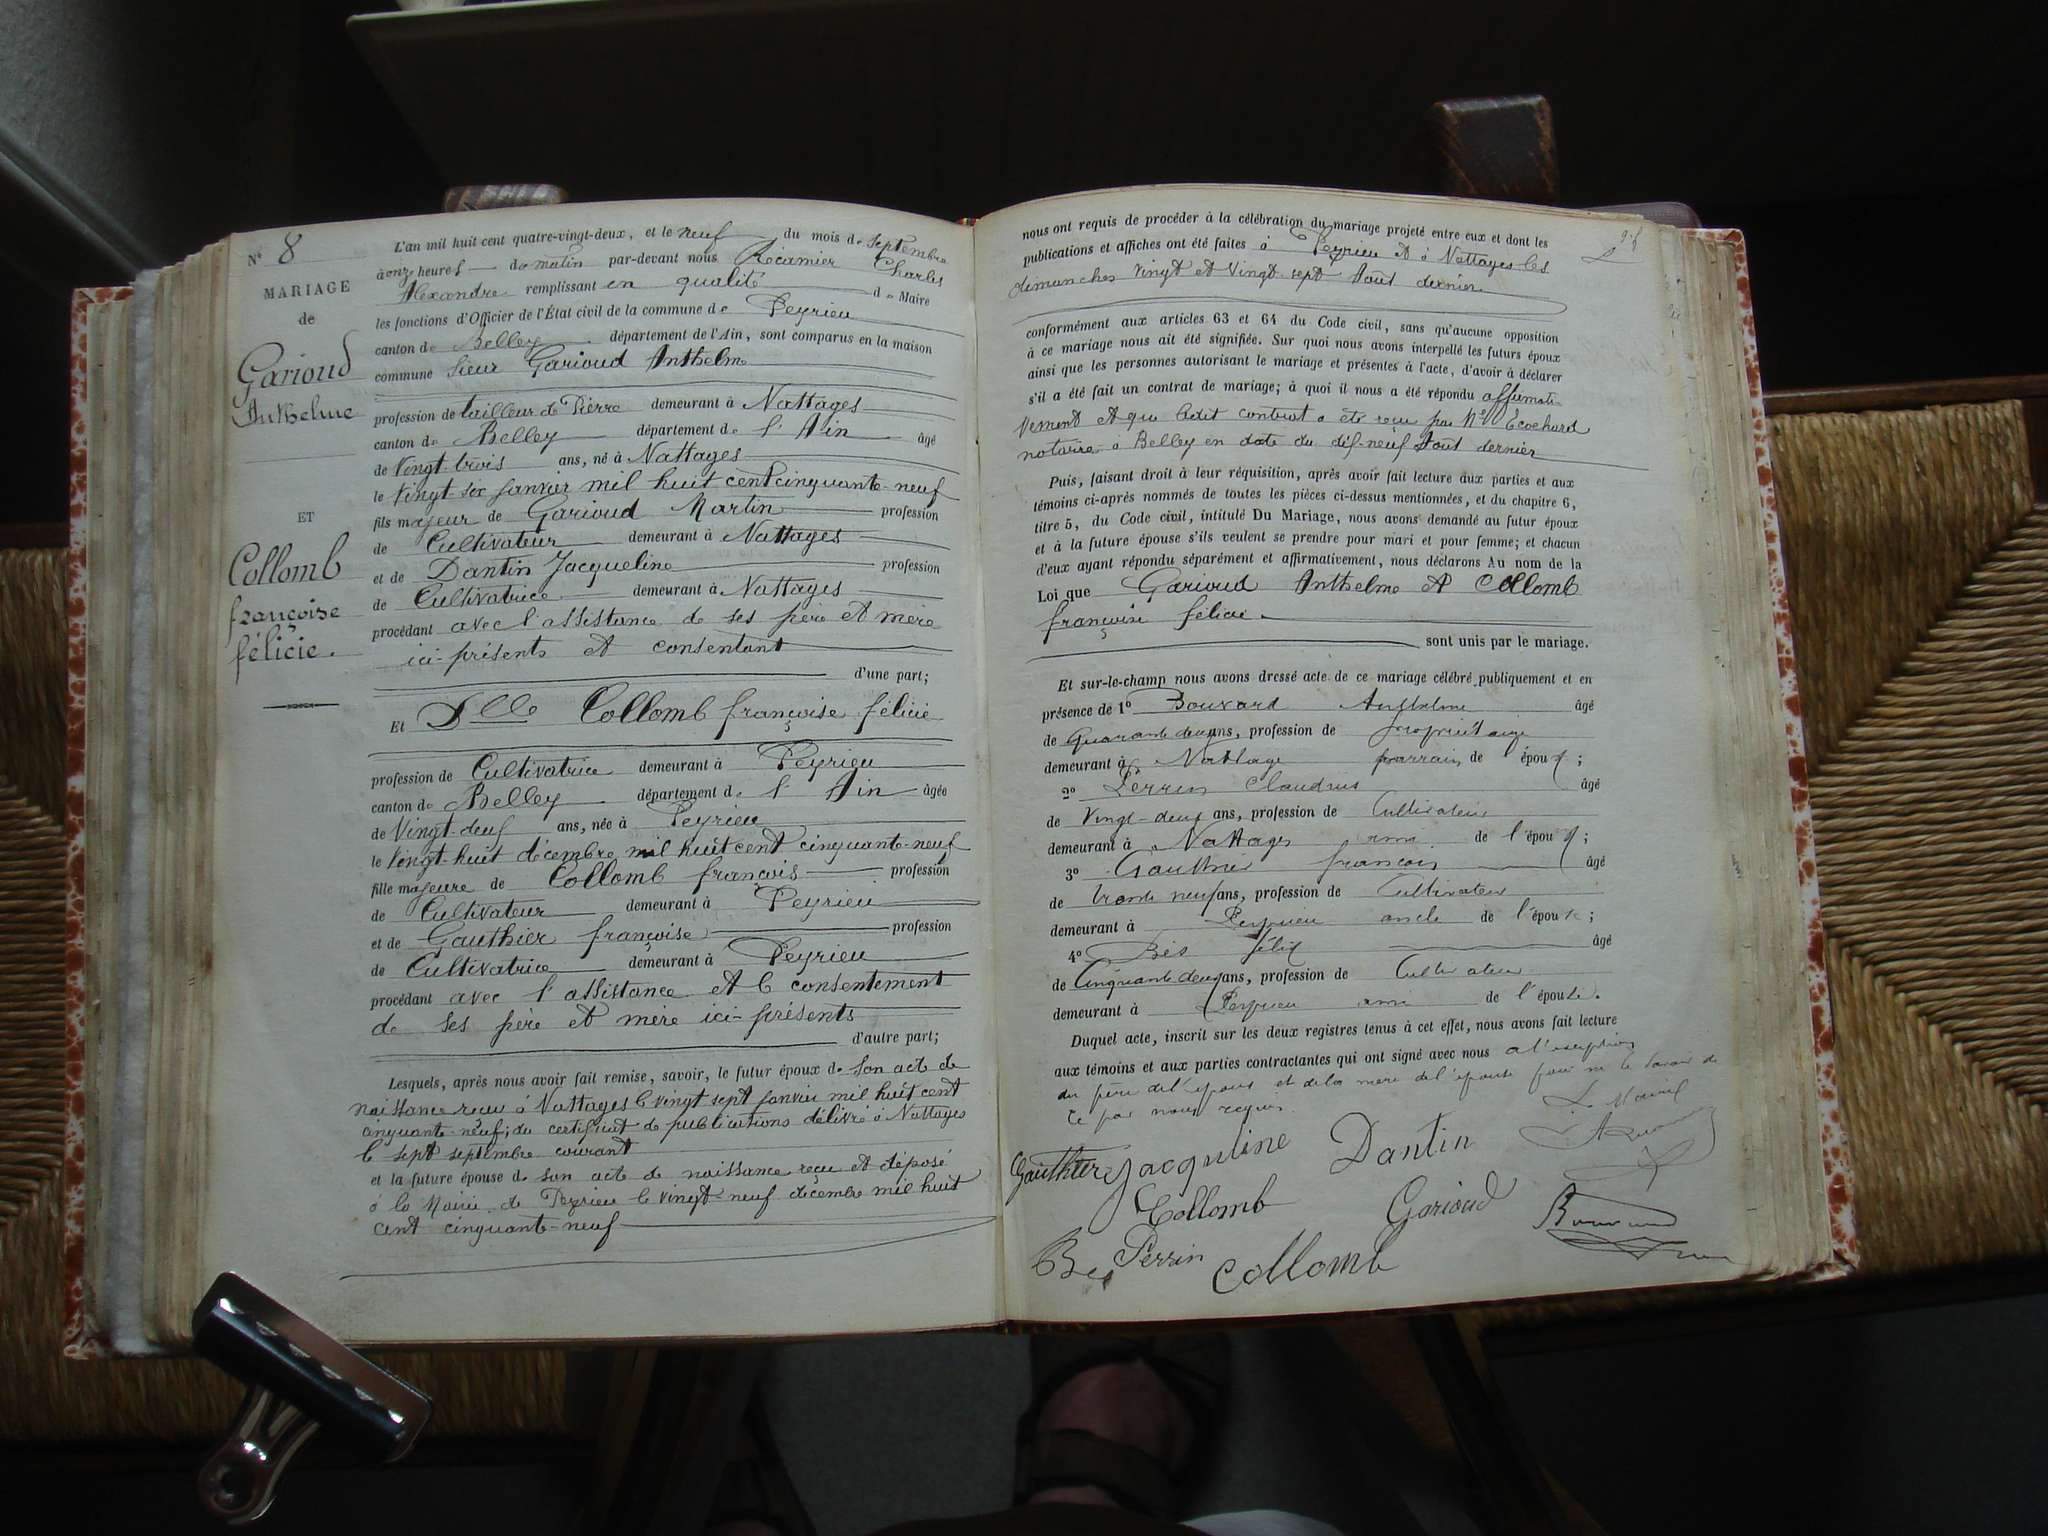 N° 8
MARIAGE
de
Garioud
Anthelme
ET
Collomb
françoise
félicie.
L'an mil huit cent quatre-vingt-deux, et le neuf du mois de septembre
à onze heures du matin par-devant nous Récamier Charles
Alexandre remplissant en qualité de Maire
les fonctions d'Officier de l'État civil de la commune de Peyrieu
canton de Belley département de l'Ain, sont comparus en la maison
commune sieur Garioud Anthelme
profession de tailleur de Pierre demeurant à Nattages
canton de Belley département de l'Ain âgé
de Vingt-trois ans, né à Nattages
le Vingt-six janvier mil huit cent cinquante-neuf
fils majeur de Garioud Martin profession
de Cultivateur demeurant à Nattages
et de Dantin Jacqueline profession
de Cultivatrice demeurant à Nattages
procédant avec l'assistance de ses père et mère
ici-présents et consentant
d'une part;
Et Dlle Collomb françoise félicie
profession de Cultivatrice demeurant à Peyrieu
canton de Belley département de l'Ain âgée
de Vingt-deux ans, née à Peyrieu
le Vingt-huit décembre mil huit cent cinquante-neuf
fille majeure de Collomb françois profession
de Cultivateur demeurant à Peyrieu
et de Gauthier françoise profession
de Cultivatrice demeurant à Peyrieu
procédant avec l'assistance et le consentement
de ses père et mère ici-présents
d'autre part;
Lesquels, après nous avoir fait remise, savoir, le futur époux de son acte de
naissance reçu à Nattages le vingt sept janvier mil huit cent
cinquante-neuf; du certificat de publications délivré à Nattages
le sept septembre courant
et la future épouse de son acte de naissance reçu et déposé
à la Mairie de Peyrieu le vingt-neuf décembre mil huit
cent cinquante-neuf
nous ont requis de procéder à la célébration du mariage projeté entre eux et dont les
publications et affiches ont été faites à Peyrieu et à Nattages les
dimanches vingt et vingt-sept Août dernier
conformément aux articles 63 et 64 du Code civil, sans qu'aucune opposition
à ce mariage nous ait été signifiée. Sur quoi nous avons interpellé les futurs époux
ainsi que les personnes autorisant le mariage et présentes à l'acte, d'avoir à déclarer
s'il a été fait un contrat de mariage; à quoi il nous a été répondu affirmati-
vement et que ledit contrat a été reçu par Me Ecochard
notaire à Belley en date du dix-neuf Août dernier
Puis, faisant droit à leur réquisition, après avoir fait lecture aux parties et aux
témoins ci-après nommés de toutes les pièces ci-dessus mentionnées, et du chapitre 6,
titre 5, du Code civil, intitulé Du Mariage, nous avons demandé au futur époux
et à la future épouse s'ils veulent se prendre pour mari et pour femme; et chacun
d'eux ayant répondu séparément et affirmativement, nous déclarons Au nom de la
Loi que Garioud Anthelme et Collomb
françoise félicie
sont unis par le mariage.
Et sur-le-champ nous avons dressé acte de ce mariage célébré publiquement et en
présence de 1° Bouvard Anthelme âgé
de Quarante deux ans, profession de propriétaire
demeurant à Nattage parrain de l'époux;
2° Perrin Claudius âgé
de Vingt-deux ans, profession de Cultivateur
demeurant à Nattages ami de l'époux;
3° Gauthier françois âgé
de trente neuf ans, profession de Cultivateur
demeurant à Peyrieu oncle de l'épouse;
4° Bés félix âgé
de Cinquante deux ans, profession de Cultivateur
demeurant à Peyrieu ami de l'épouse.
Duquel acte, inscrit sur les deux registres tenus à cet effet, nous avons fait lecture
aux témoins et aux parties contractantes qui ont signé avec nous a l'exception
du père de l'époux et de la mère de l'épouse pour ne le savoir de
ce par nous requis.
Le Maire
Gauthier Jacquline Dantin
Collomb Garioud
Bes Perrin Collomb